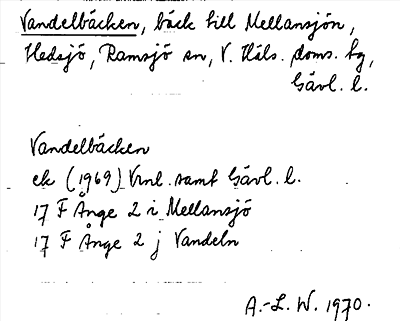 Vandelbäcken, bäck till Mellansjön,
Hedsjö, Ramsjö sn, V. Häls. doms. tg,
Gävl. l.
Vandelbäcken
ek (1969) Vrnl. samt Gävl. l.
17 F Ånge 2 i Mellansjö
17 F Ånge 2 j Vandeln
A.-L. W. 1970.